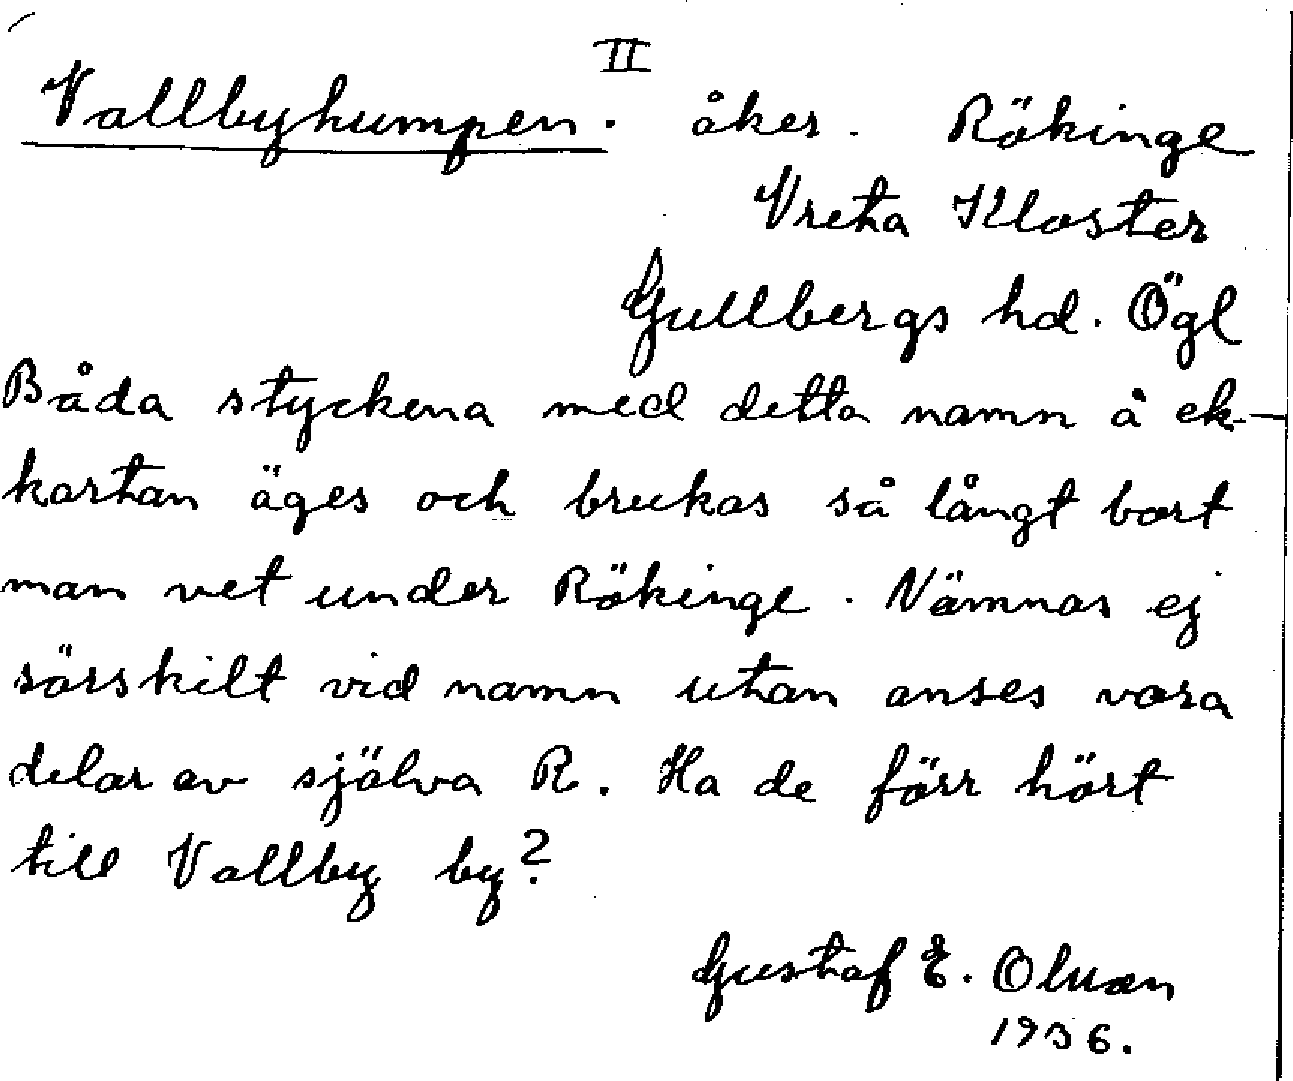 II
Vallbyhumpen. åker. Rökinge
Vreta Kloster
Gullbergs hd. Ögl
Båda styckena med detta namn å ek-
kartan äges och brukas så långt bort
man vet under Rökinge. Nämnas ej
särskilt vid namn utan anses vara
delar av själva R. Ha de förr hört
till Vallby by?
Gustaf E. Olman
1936.